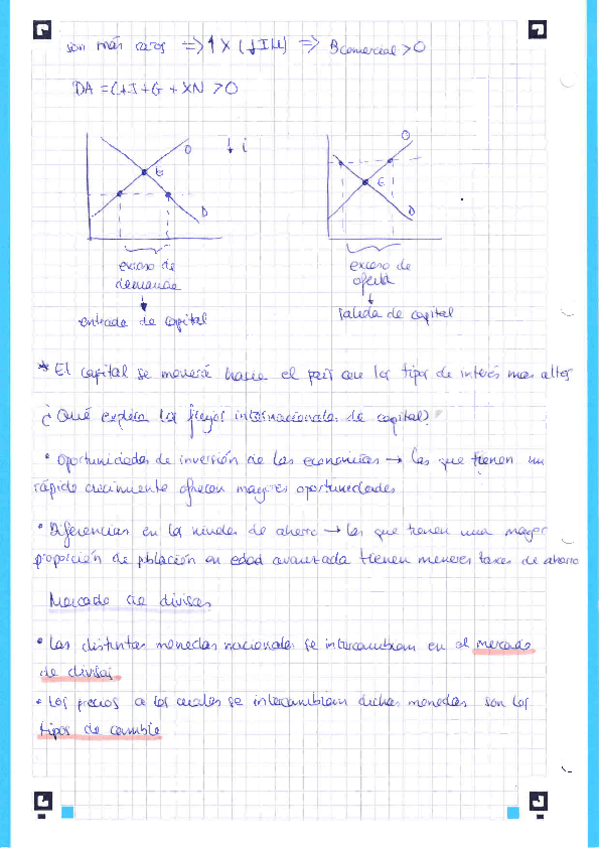 son más caros => ↑X (↓IM) => Bcomercial > 0
DA = C+I+G+XN > 0
O
↓ i
E
D
O
E
D
exceso de
demanda
exceso de
oferta
entrada de capital
salida de capital
* El capital se moverá hacia el país con los tipos de interés mas altos
¿Qué explica los flujos internacionales de capital?
• Oportunidades de inversión de las economías → las que tienen un
rápido crecimiento ofrecen mayores oportunidades
• Diferencias en los niveles de ahorro → las que tienen una mayor
proporción de población en edad avanzada tienen menores tasas de ahorro
Mercado de divisas
• Las distintas monedas nacionales se intercambian en el mercado
de divisas.
• Los precios a los cuales se intercambian dichas monedas son los
tipos de cambio